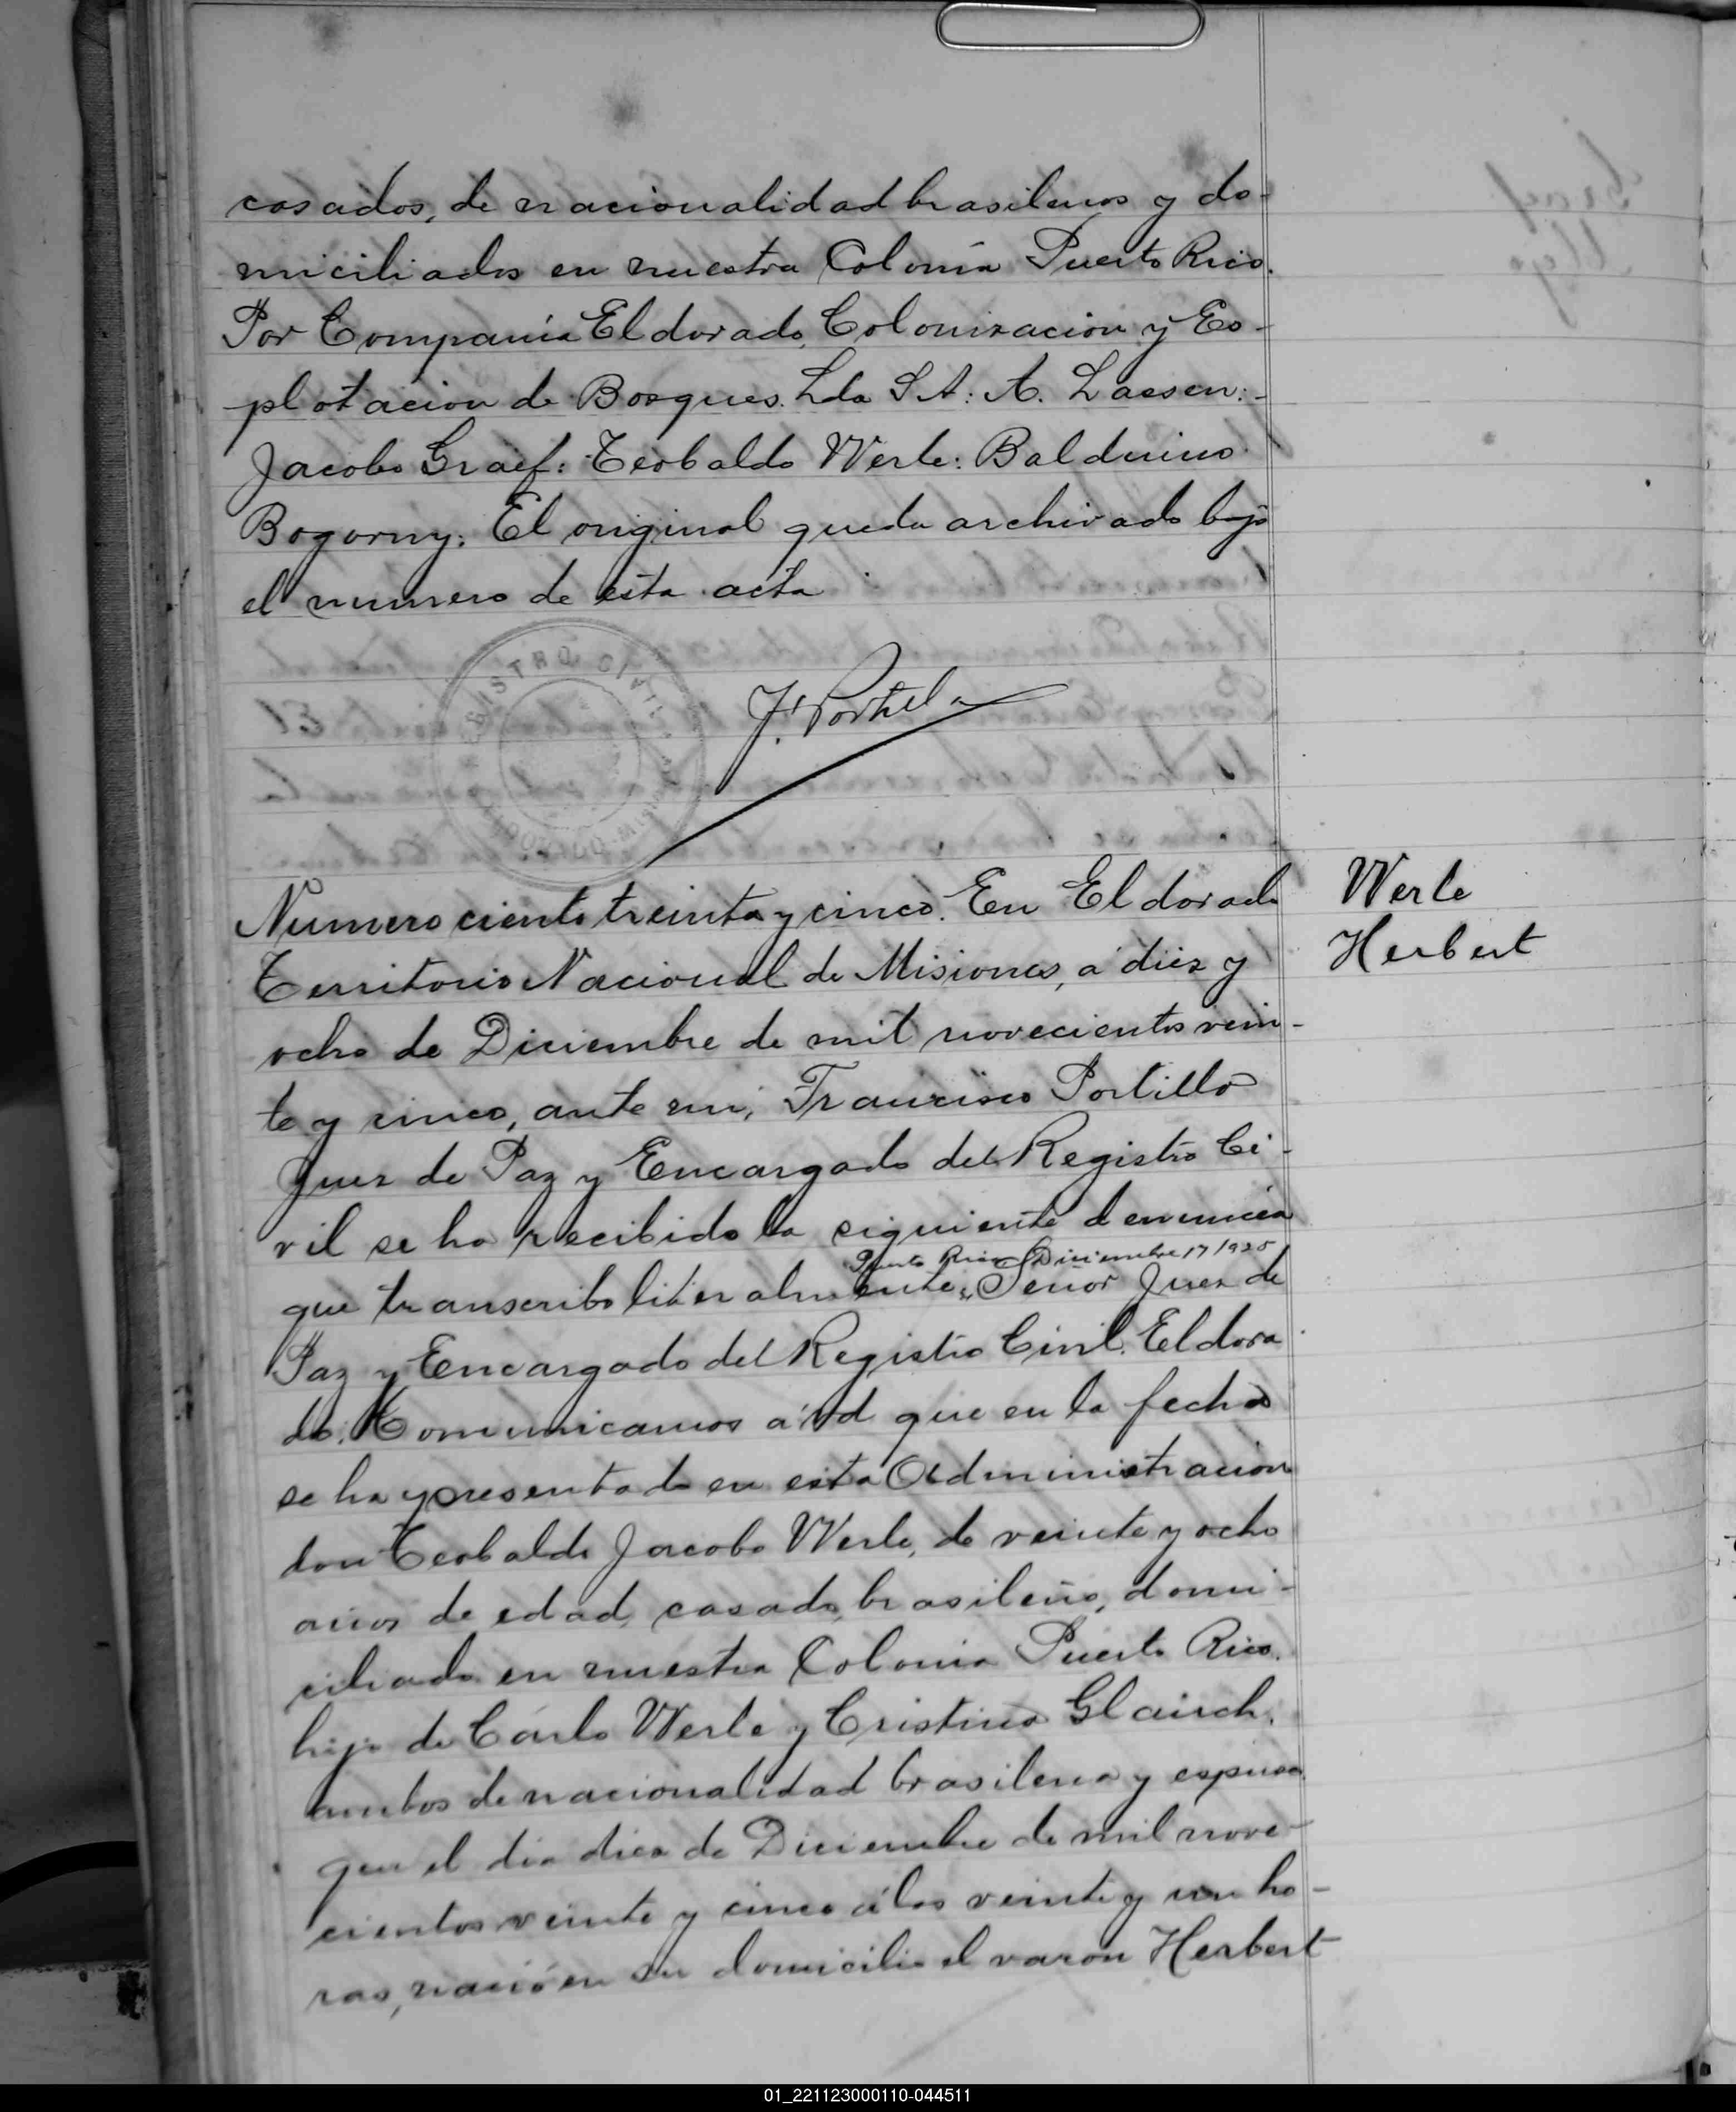 casados, de nacionalidad brasilenos y do-
miciliados en nuestra Colonia Puerto Rico.
Por Compania Eldorado, Colonizacion y Ex-
plotacion de Bosques. Lda S. A: A. Laesen:-
Jacobo Graef: Teobaldo Werle: Balduino
Bogorny: El original queda archivado bajo
el numero de esta acta
REGISTRO CIVIL
Numero ciento treinta y cinco. En Eldorado
Werle
Territorio Nacional de Misiones, a diez y
Herbert
ocho de Diciembre de mil novecientos vein-
te y cinco, ante mi, Francisco Portillo
Juez de Paz y Encargado del Registro Ci-
vil se ha recibido la siguiente denuncia
Puerto Rico Diciembre 17 1925
que transcribo literalmente: "Señor Juez de
Paz y Encargado del Registro Civil. Eldora
do. Comunicamos a Ud que en la fecha
se ha presentado en esta Administracion
don Teobaldo Jacobo Werle, de veinte y ocho
años de edad, casado, brasileño, domi-
ciliado en nuestra Colonia Puerto Rico.
hijo de Carlo Werle y Cristina Glairch.
ambos de nacionalidad brasilena y espuso
que el dia diez de Diciembre de mil nove-
cientos veinte y cinco á las veinte y un ho-
ras, nació en su domicilio el varon Herbert
01_221123000110-044511